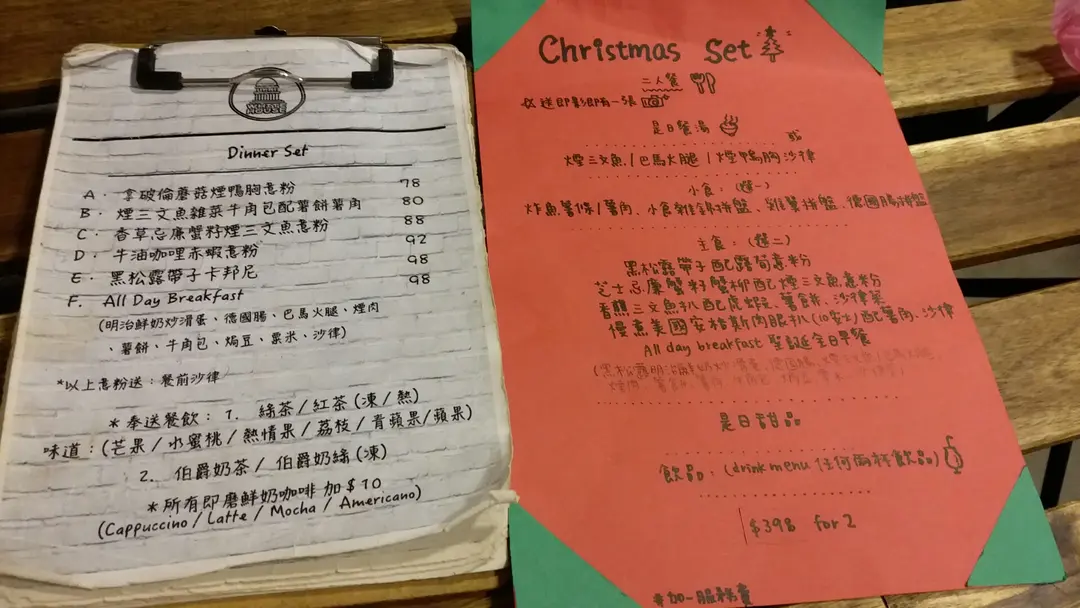 HOUSE
Dinner Set
A. 拿破倫蘑菇煙鴨胸意粉 78
B. 煙三文魚雜菜牛角包配薯餅薯角 80
C. 香草忌廉蟹籽煙三文魚意粉 88
D. 牛油咖哩赤蝦意粉 92
E. 黑松露帶子卡邦尼 98
F. All Day Breakfast 98
(明治鮮奶炒滑蛋、德國腸、巴馬火腿、煙肉
、薯餅、牛角包、焗豆、粟米、沙律)
*以上意粉送:餐前沙律
*奉送餐飲:1. 綠茶/紅茶(凍/熱)
味道:(芒果/水蜜桃/熱情果/荔枝/青蘋果/蘋果)
2. 伯爵奶茶/伯爵奶綠(凍)
*所有即磨鮮奶咖啡加$10
(Cappuccino/Latte/Mocha/Americano)
Christmas Set
二人餐
送即影即有一張
是日餐湯
或
煙三文魚/巴馬火腿/煙鴨胸沙律
小食:(選一)
炸魚薯條/薯角、小食雜錦拼盤、雞翼拼盤、德國腸拼盤
主食:(選二)
黑松露帶子配露筍意粉
芝士忌廉蟹籽蟹柳配煙三文魚意粉
香煎三文魚扒配虎蝦、薯餅、沙律菜
慢煮美國安格斯肉眼扒(10安士)配薯角、沙律
All day breakfast 聖誕全日早餐
(黑松露明治鮮奶炒滑蛋、德國腸、
是日甜品
飲品:(drink menu 任何兩杯飲品)
$398 for 2
#加一服務費